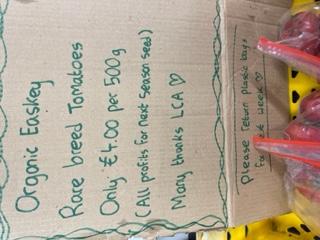 Organic Easkey
Rare breed Tomatoes
Only £4.00 per 500g
(All profits for next season seed)
Many thanks LCA ♡
Please return plastic bags
for next week ♡